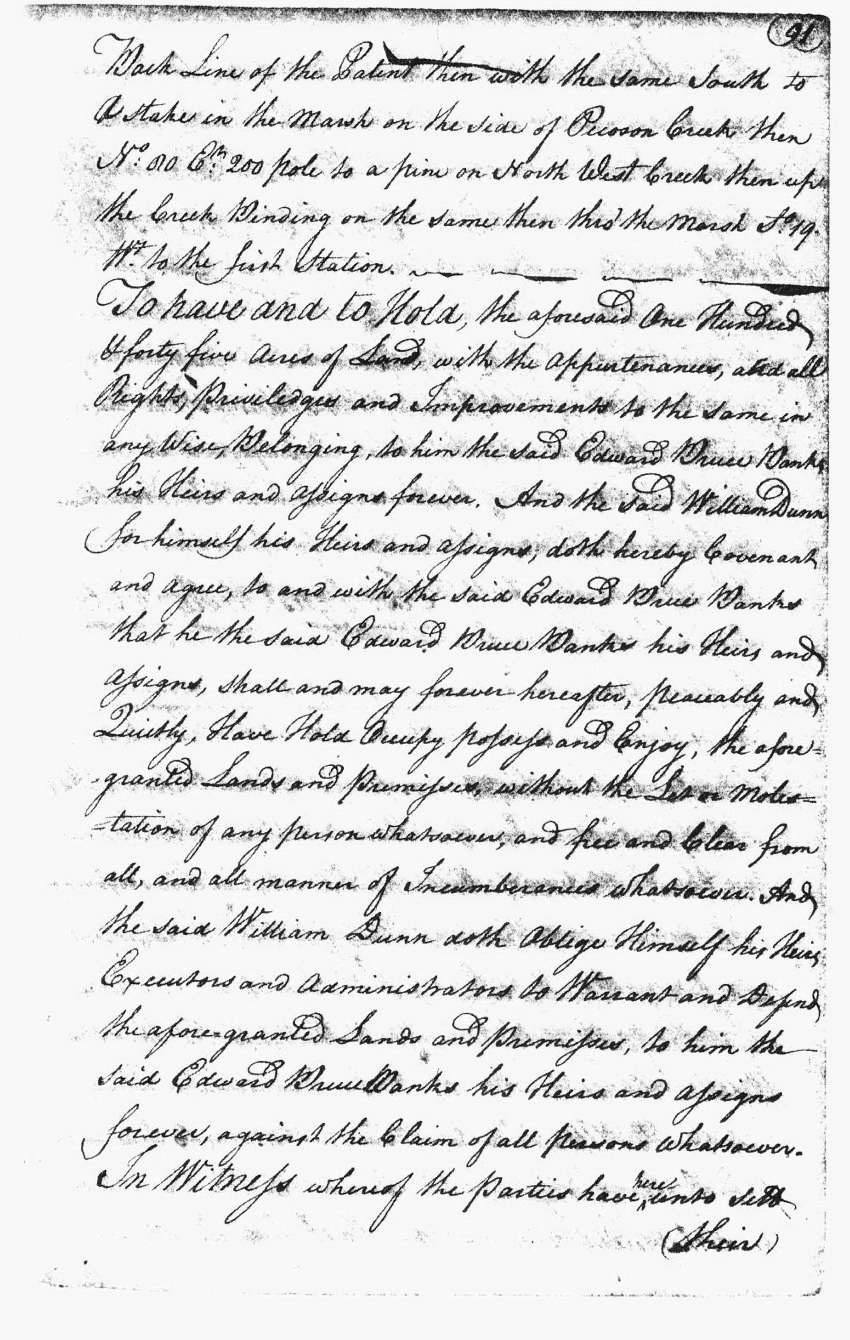 91
Back Line of the Patent then with the same South to
A stake in the Marsh on the side of Pecoson Creek then
No. 80 Et. 200 pole to a pine on North West Creek then up
the Creek Binding on the same then thro' the Marsh So. 19.
Wt. to the first Station.
To have and to Hold, the aforesaid One Hundred
& forty five Acres of Land, with the appurtenances, and all
Rights, Priviledges and Improvements to the same in
any Wise, Belonging, to him the said Edward Bruce Banks,
his Heirs and assigns forever. And the said William Dunn
for himself his Heirs and assigns, doth hereby Covenant
and agree, to and with the said Edward Bruce Banks
that he the said Edward Bruce Banks his Heirs and
assigns, shall and may forever hereafter, peaceably and
Quietly, Have Hold Occupy possess and Enjoy, the afore=
granted Lands and Premisses, without the Let or Moles=
=tation of any person whatsoever, and free and Clear from
all, and all manner of Incumberances whatsoever. And
the said William Dunn doth Oblige Himself his Heirs,
Executors and Administrators to Warrant and Defend
the afore-granted Lands and Premisses, to him the
said Edward Bruce Banks his Heirs and assigns
forever, against the Claim of all persons whatsoever.
In Witness whereof the Parties have here unto sett
(their)